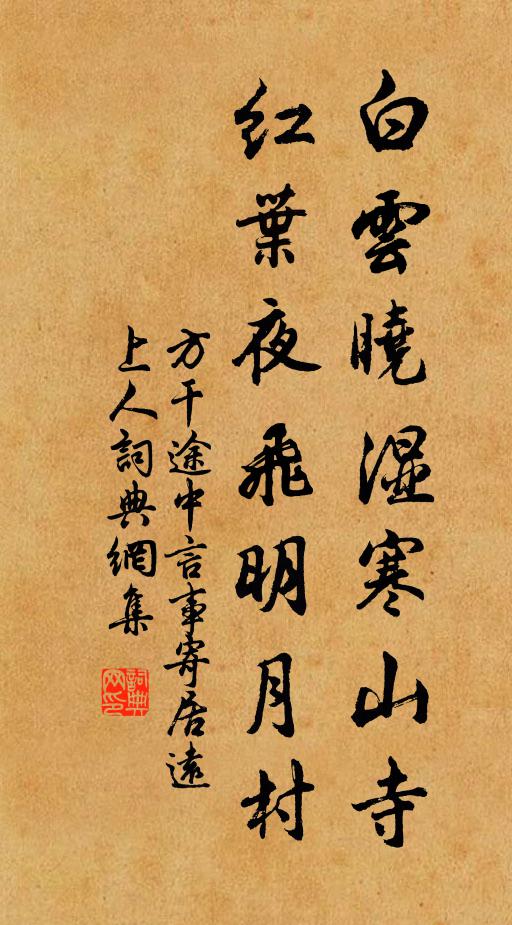 白雲曉濕寒山寺
紅葉夜飛明月村
方干途中言事寄居遠
上人詞典網集
詞典网印